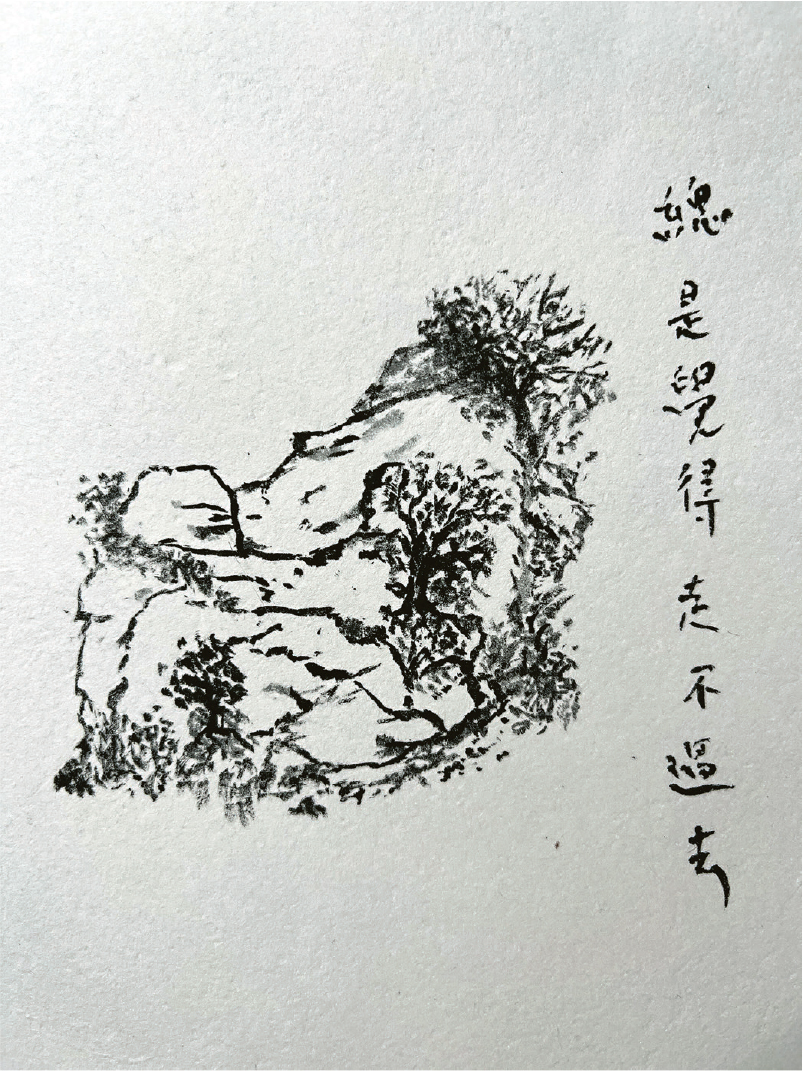 總是覺得走不過去